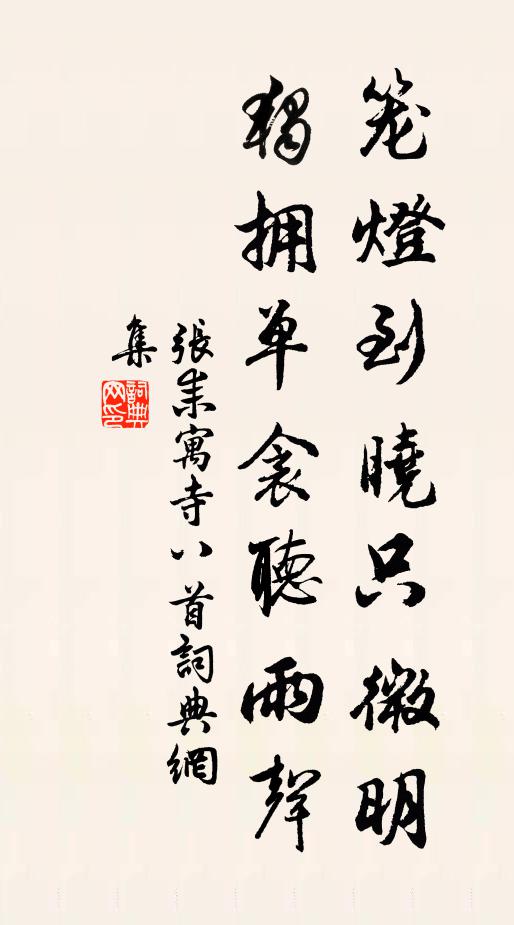 笼燈到曉只微明
獨拥单衾聽雨聲
張耒寓寺八首詞典網
集
詞典網印